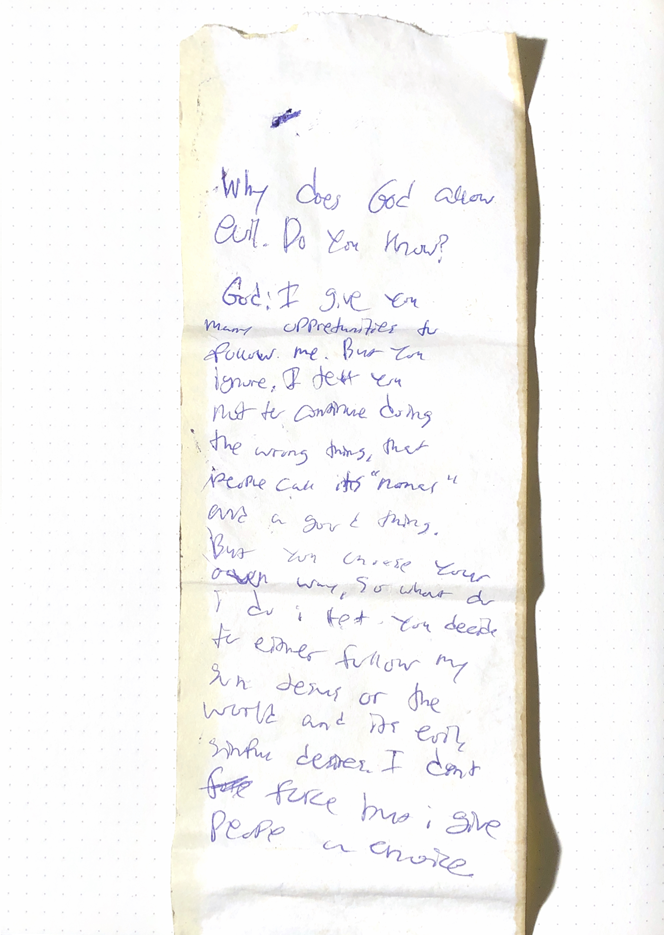 Why does God allow
evil. Do You Know?
God: I give You
many oppretunities to
follow me. But You
ignore, I tell You
not to continue doing
the wrong thing, that
People Call its "normal"
and a good thing.
But You choose Your
own way, So what do
i do i let You decide
to either follow my
Son Jesus or the
world and its evil,
sinful desires. I dont
force but i give
People a choice